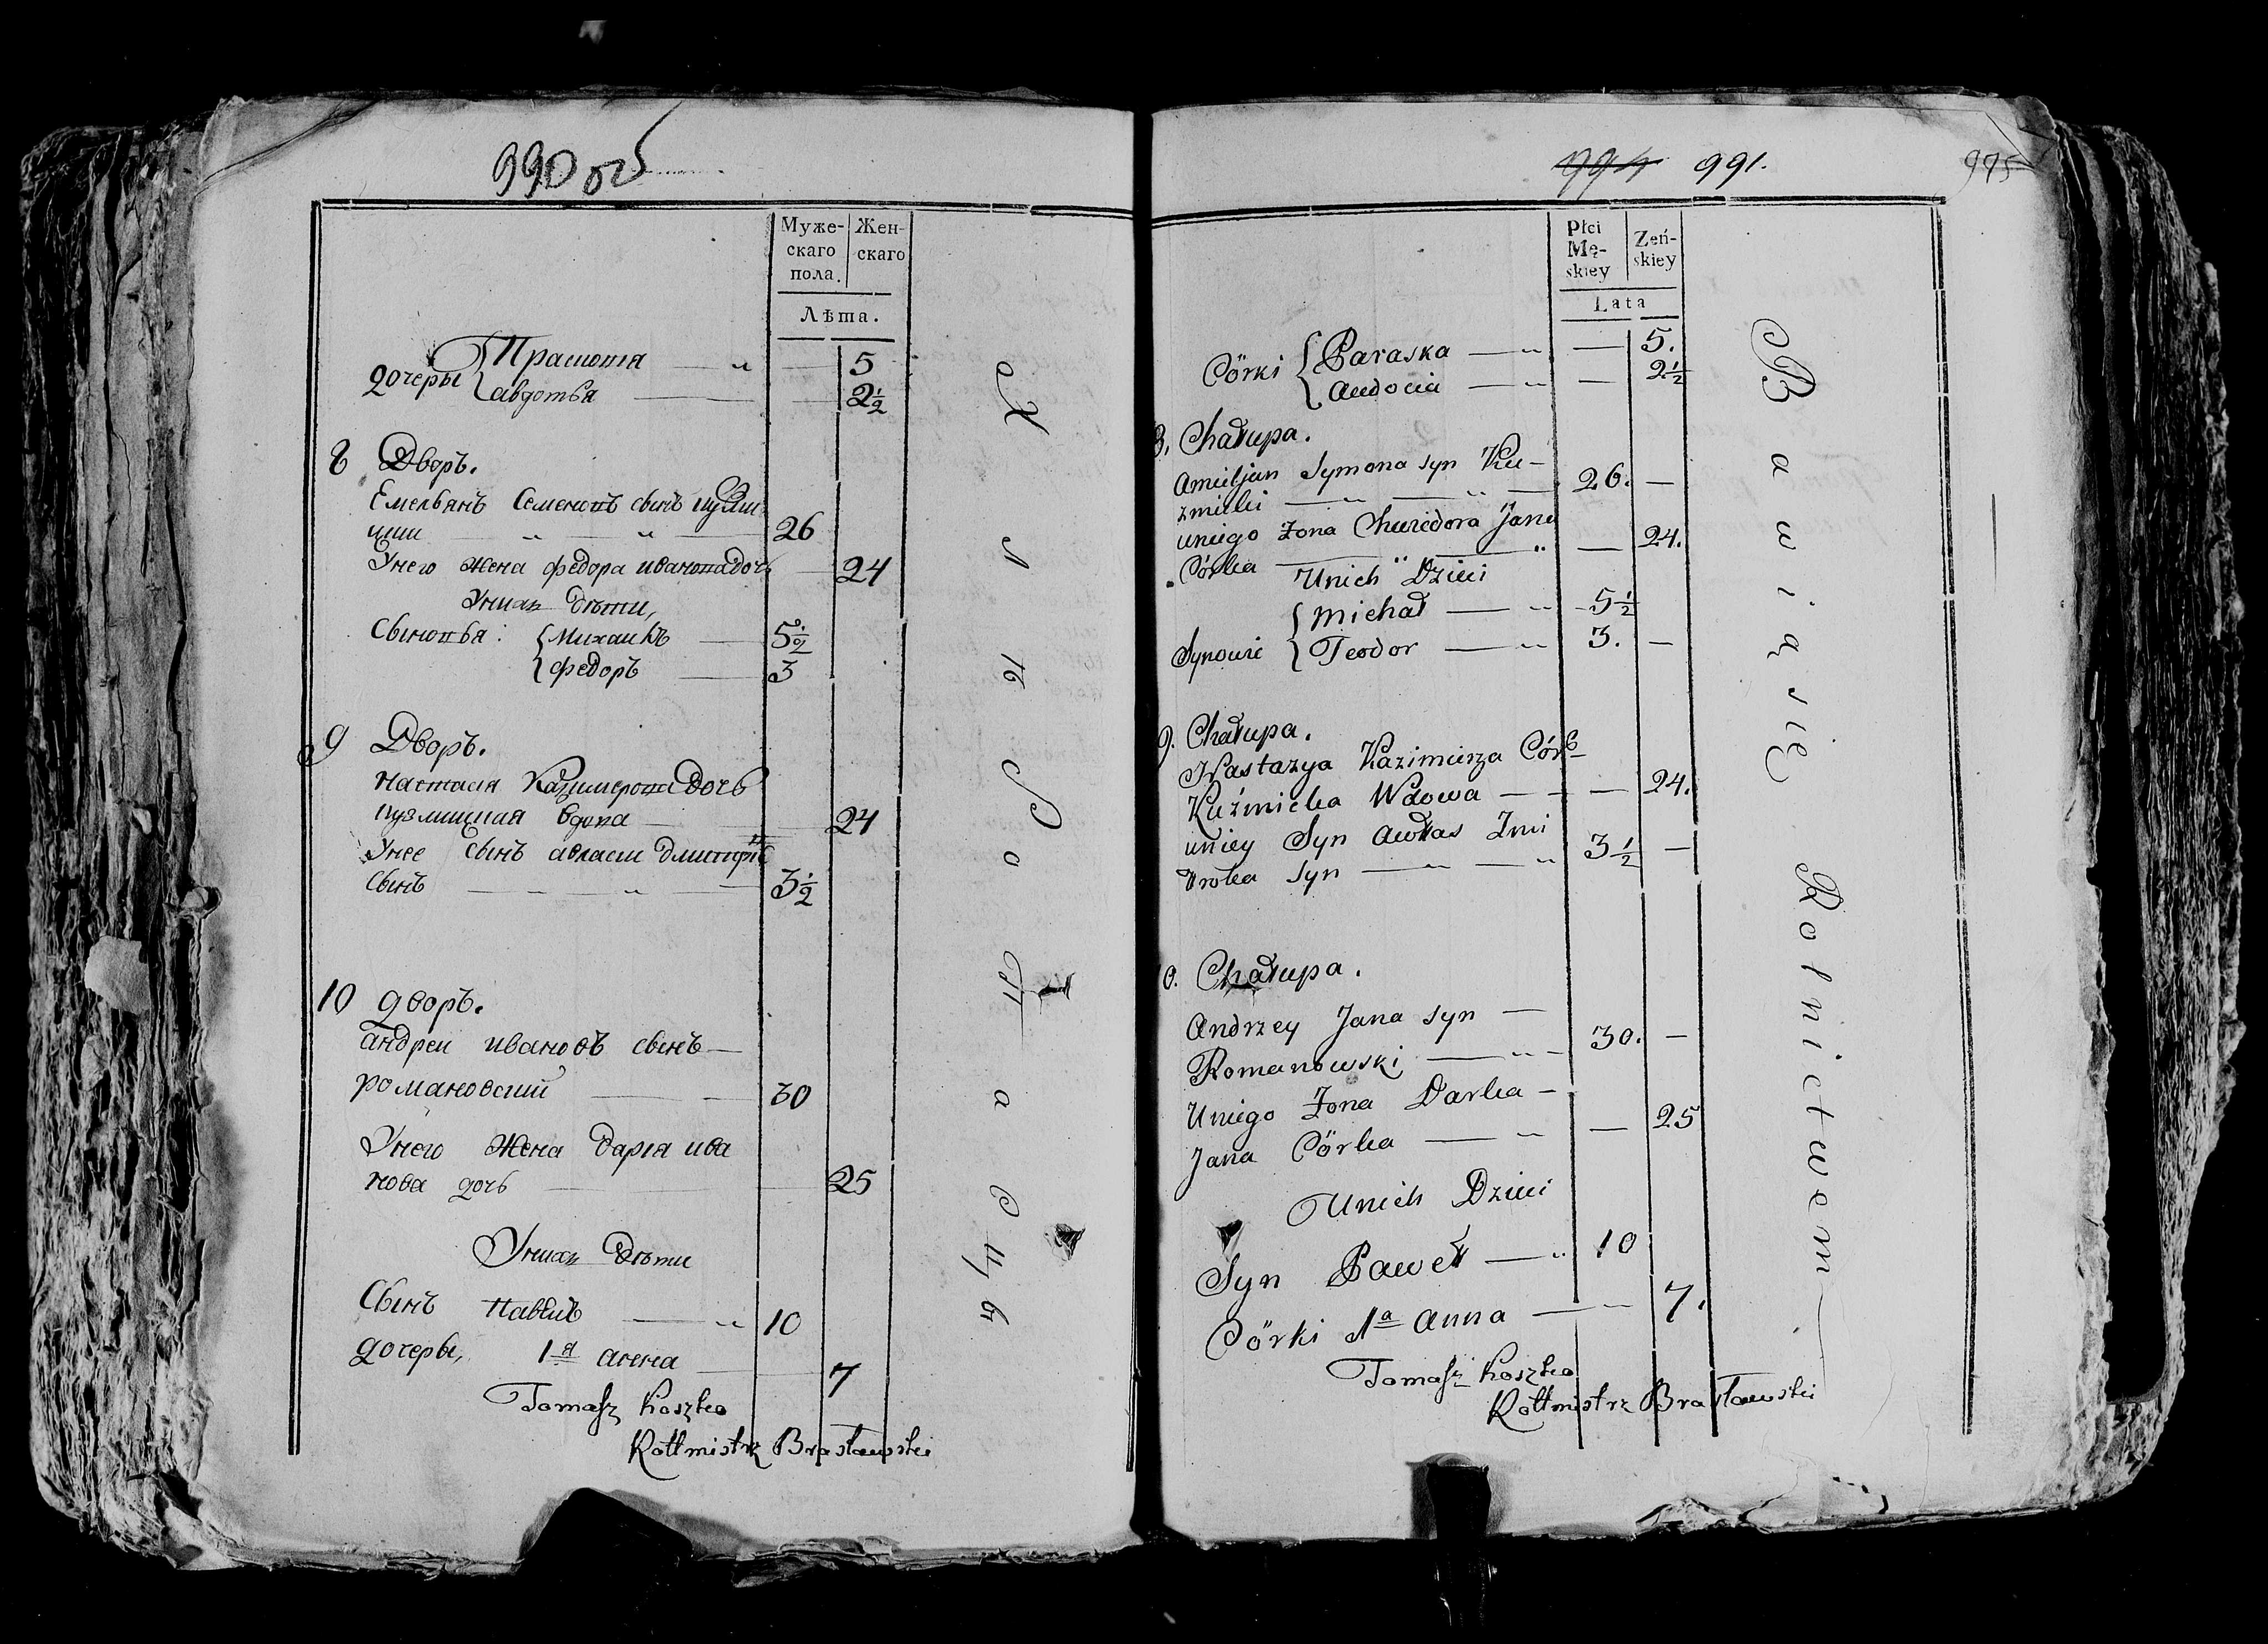 990 об
Муже-
скаго
пола.
Жен-
скаго
Лѣта.
дочеры { Прасковья — " — 5
{ авдотья — — 2½
8 Дворъ.
Емельянъ Семеновъ сынъ кузми
цкии — " — " — 26
Унего жена федора ивановадочь — 24
Унихъ дѣти,
Сыновья: { Михаилъ — 5½
{ федоръ — 3
9 Дворъ.
настасия Казимерова дочь
кузмицкая вдова — 24
Унее сынъ авласъ дмитрі
сынъ — " — 3½
10 дворъ.
андреи ивановъ сынъ —
романовский — — 30
Унего жена дарія ива
нова дочь — — 25
Унихъ дѣти
Сынъ павелъ — " 10
дочеры, 1я анна — 7
Tomasz Koszko
Rottmistrz Brasławski
991.
975
Płci
Mę-
skiey
Zeń-
skiey
Lata
Córki { Paraska — " — 5.
{ Audocia — " — 2½
8. Chałupa.
Amiljan Symona syn Ku-
zmicki — " — " — 26. —
uniego Żona Chwiedora Jana
Córka — " — " — 24.
Unich Dzieci
{ Michał — " — 5½
Synowie { Teodor — " 3. —
9. Chałupa.
Nastazya Kazimierza Córk
Kuźmicka Wdowa — — — 24.
uniey Syn Awłas Zmi
troka syn — " — " 3½ —
0. Chałupa.
Andrzey Jana syn —
Romanowski — " — 30. —
Uniego Żona Darka —
Jana Córka — " — 25
Unich Dzieci
Syn Paweł — " 10
Córki 1a Anna — " — 7.
Tomasz Koszko
Rottmistrz Brasławski
Bawią się Rolnictwem